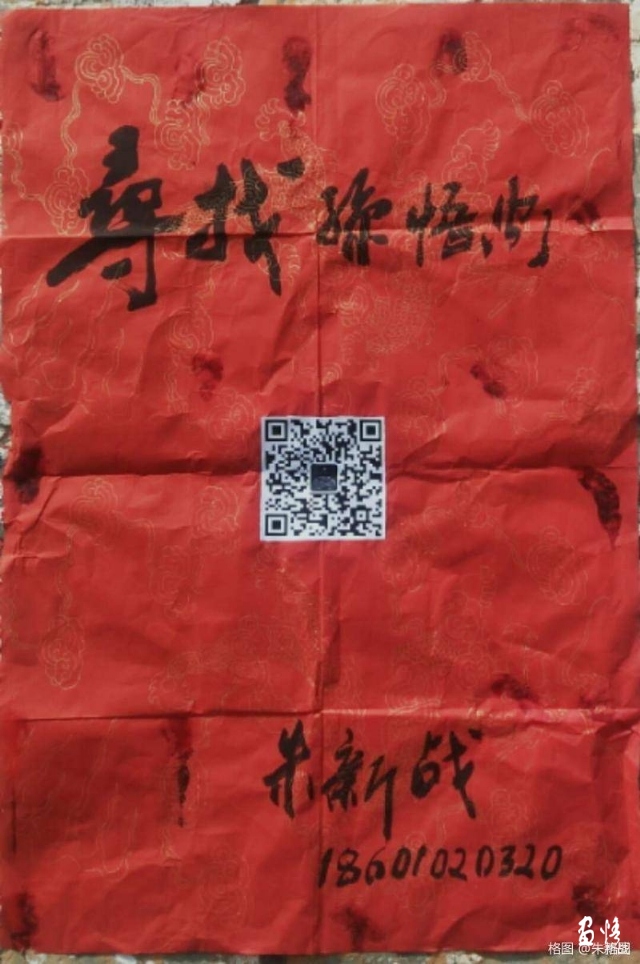 尋找 孫悟
朱新战
18601020320
格图 @朱新战